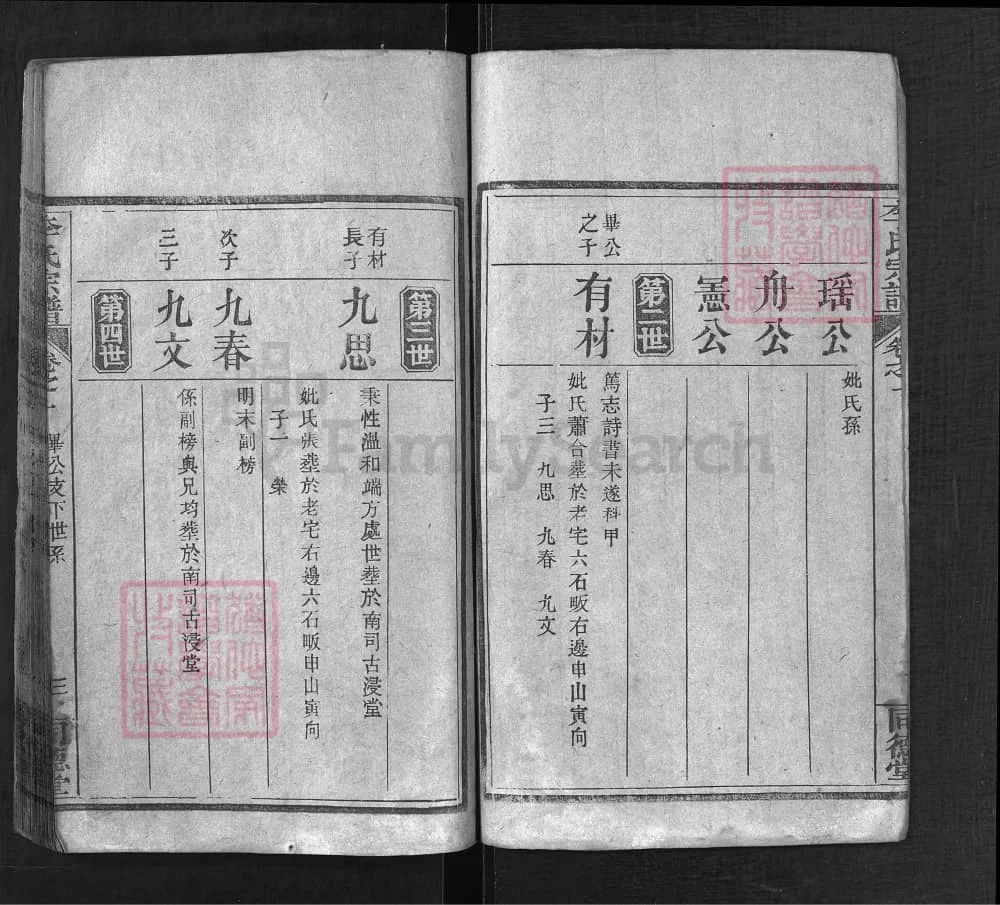 李氏宗譜
卷之一
同德堂
瑶公
妣氏孫
舟公
憲公
第二世
畢公
之子
有材
篤志詩書未遂科甲
妣氏蕭合塟於老宅六石畈右邊申山寅向
子三 九思 九春 九文
第三世
有材
長子
九思
秉性溫和端方處世塟於南司古浸堂
妣氏張塟於老宅右邊六石畈申山寅向
子一 榮
次子
九春
明末副榜
三子
九文
係副榜與兄均塟於南司古浸堂
第四世
李氏宗譜
卷之一
畢公支下世系
三
同德堂
FamilySearch